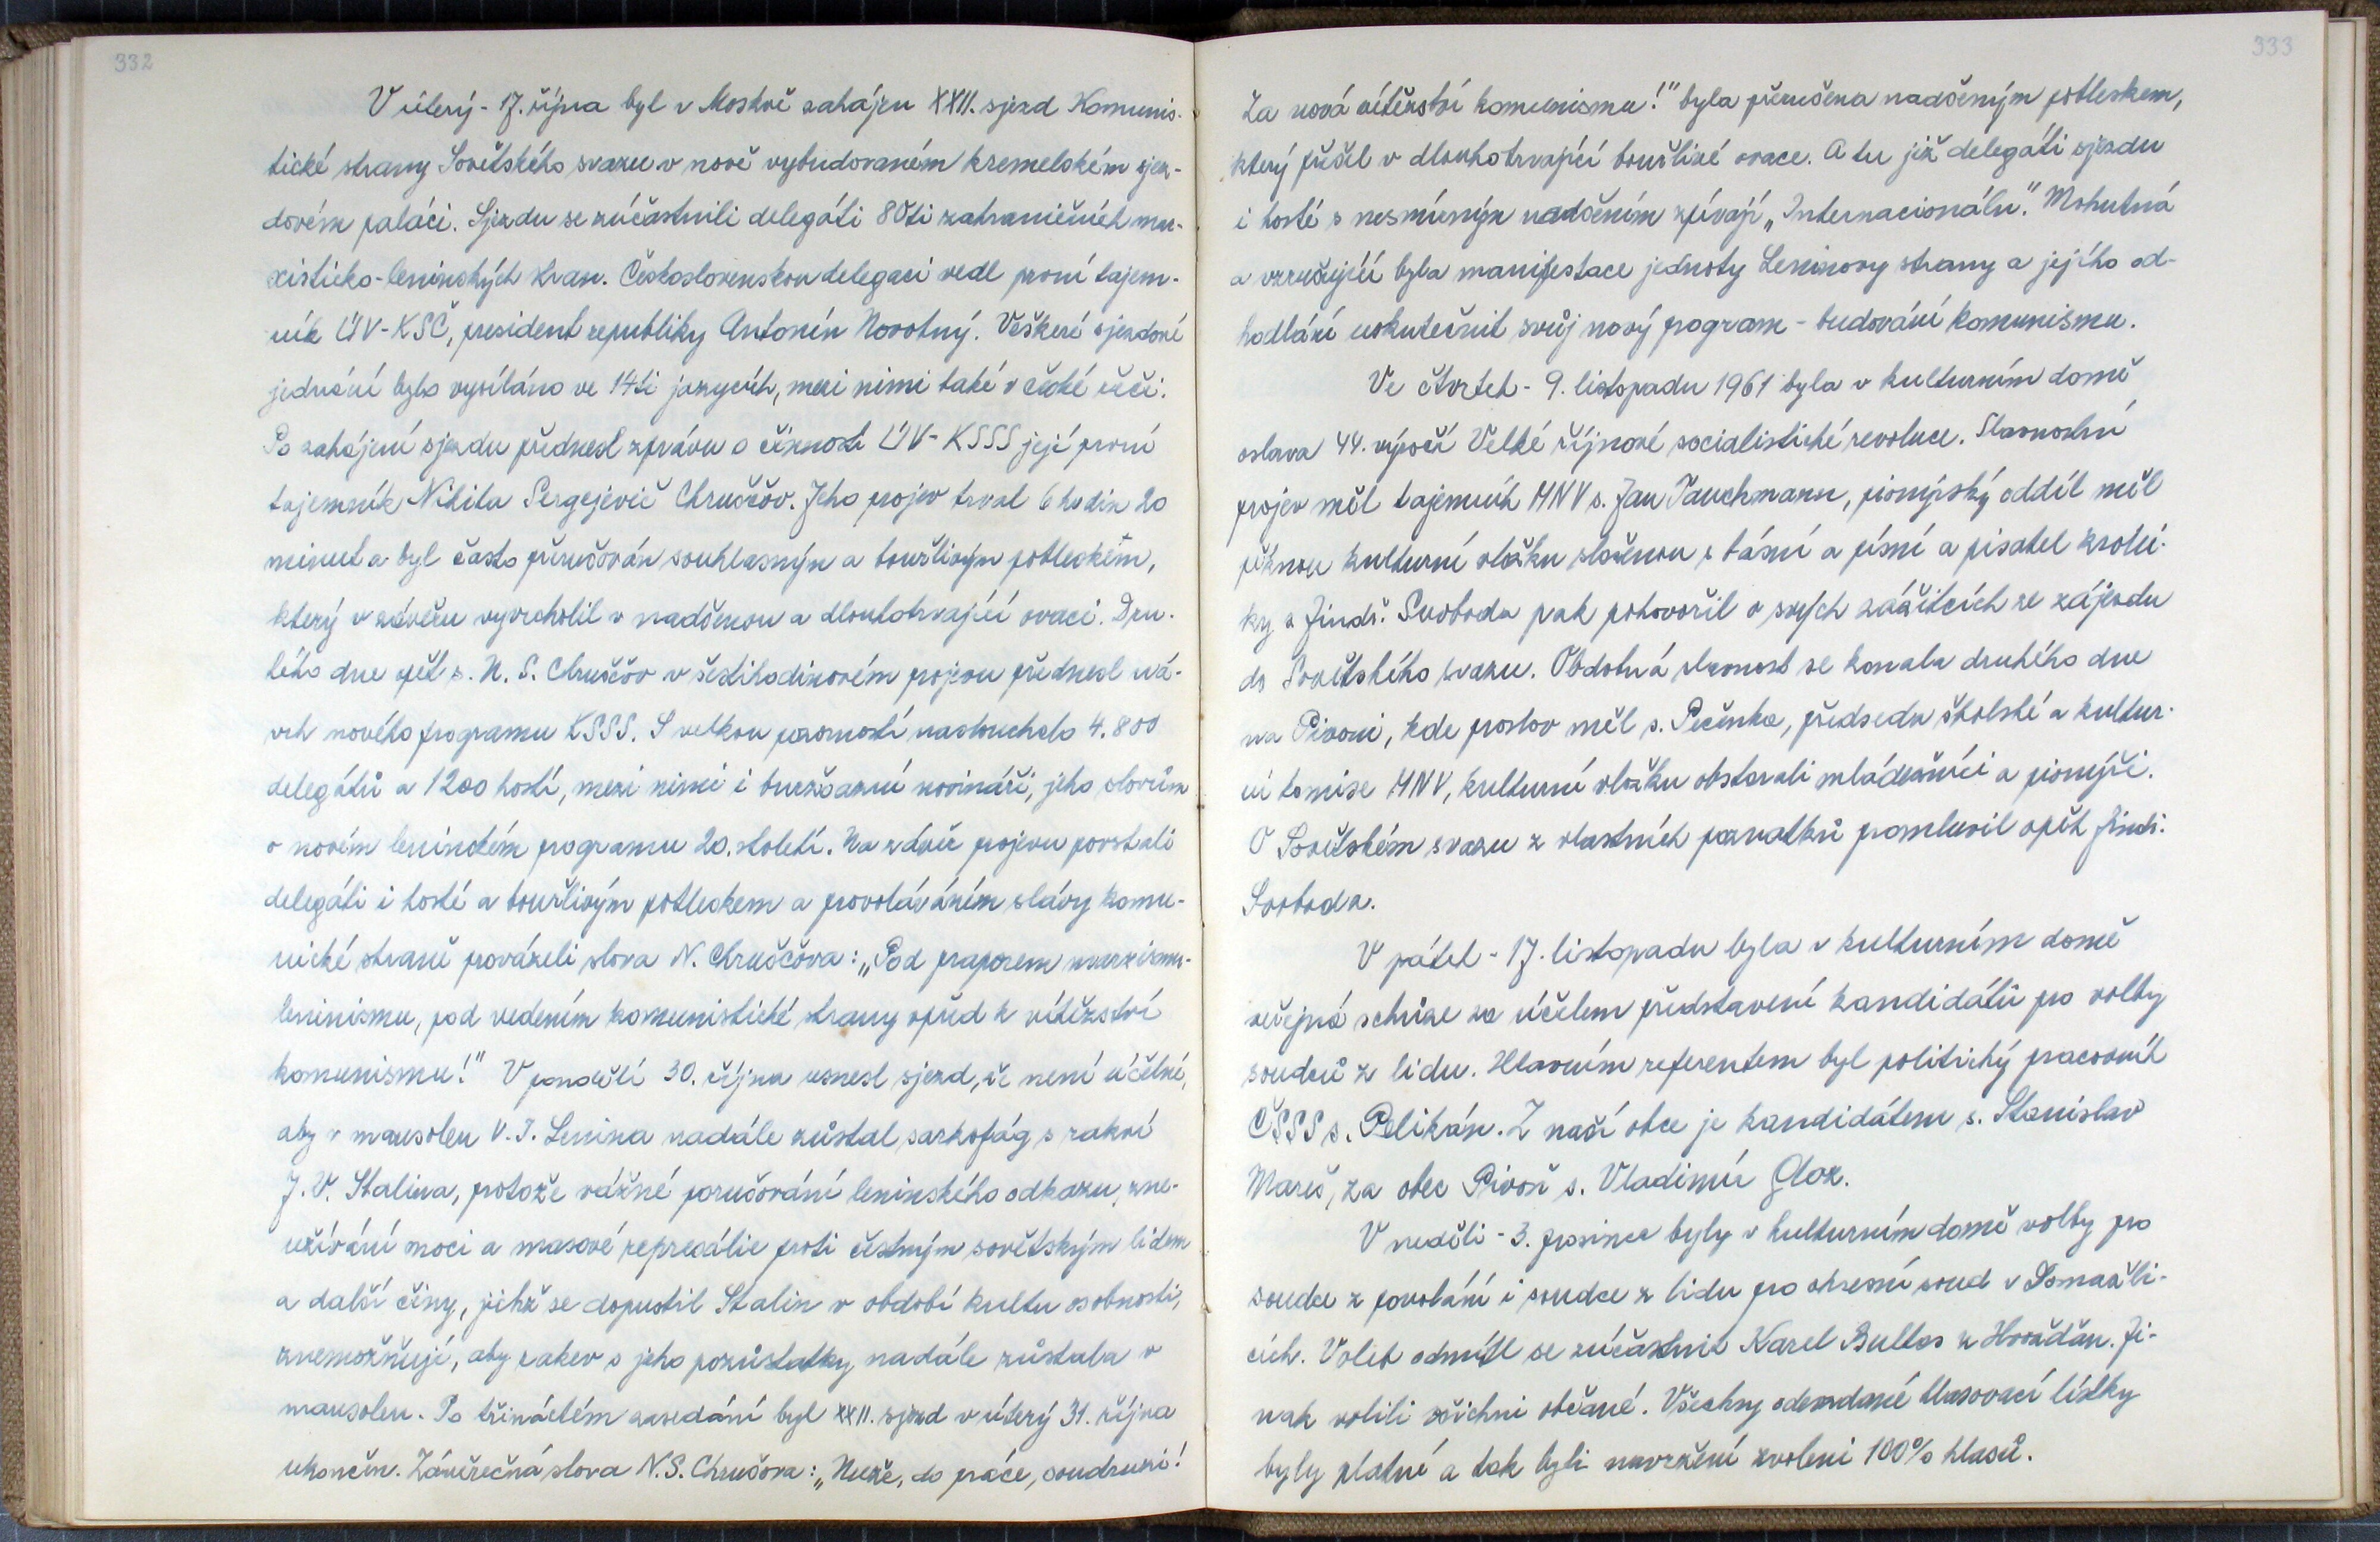 332
V úterý - 17. října byl v Moskvě zahájen XXII. sjezd Komunis-
tické strany Sovětského svazu v nově vybudovaném kremelském sjez-
dovém paláci. Sjezdu se zúčastnili delegáti 80ti zahraničních mar-
xisticko-leninských stran. Československou delegaci vedl první tajem-
ník ÚV-KSČ, president republiky Antonín Novotný. Veškeré sjezdové
jednání bylo vysíláno ve 14ti jazycích, mezi nimi také v české řeči.
Po zahájení sjezdu přednesl zprávu o činnosti ÚV-KSSS její první
tajemník Nikita Sergejevič Chruščov. Jeho projev trval 6 hodin 20
minut a byl často přerušován souhlasným a bouřlivým potleskem,
který v závěru vyvrcholil v nadšenou a dlouhotrvající ovaci. Dru-
hého dne opět s. N. S. Chruščov v šestihodinovém projevu přednesl ná-
vrh nového programu KSSS. S velkou pozorností naslouchalo 4.800
delegátů a 1200 hostí, mezi nimi i buržoazní novináři, jeho slovům
o novém leninském programu 20. století. Na závěr projevu povstali
delegáti i hosté a bouřlivým potleskem a provoláváním slávy komu-
nické straně provázeli slova N. Chruščova: „Pod praporem marxismu-
leninismu, pod vedením komunistické strany vpřed k vítězství
komunismu!" V pondělí 30. října usnesl sjezd, že není účelné,
aby v mausoleu V. I. Lenina nadále zůstal sarkofág s rakví
J. V. Stalina, protože vážné porušování leninského odkazu, zne-
užívání moci a masové represálie proti čestným sovětským lidem
a další činy, jichž se dopustil Stalin v období kultu osobnosti,
znemožňují, aby rakev s jeho pozůstatky nadále zůstala v
mausoleu. Po třináctém zasedání byl XXII. sjezd v úterý 31. října
ukončen. Závěrečná slova N.S. Chruščova: „Nuže, do práce, soudruzi!
333
Za nová vítězství komunismu!" byla přerušena nadšeným potleskem,
který přešel v dlouhotrvající bouřlivé ovace. A tu již delegáti sjezdu
i hosté s nesmírným nadšením zpívají „Internacionálu". Mohutná
a vzrušující byla manifestace jednoty Leninovy strany a jejího od-
hodlání uskutečnit svůj nový program - budování komunismu.
Ve čtvrtek - 9. listopadu 1961 byla v kulturním domě
oslava 44. výročí Velké říjnové socialistické revoluce. Slavnostní
projev měl tajemník MNV s. Jan Tauchmann, pionýrský oddíl měl
pěknou kulturní vložku složenou z básní a písní a pisatel kroni-
ky s Jindř. Svoboda pak pohovořil o svých zážitcích ze zájezdu
do Sovětského svazu. Obdobná slavnost se konala druhého dne
na Pivoni, kde proslov měl s. Pečinka, předseda školské a kultur-
ní komise MNV, kulturní vložku obstarali mládežníci a pionýři.
O Sovětském svazu z vlastních poznatků promluvil opět Jindř.
Svoboda.
V pátek - 17. listopadu byla v kulturním domě
veřejná schůze za účelem představení kandidátů pro volby
soudců z lidu. Hlavním referentem byl politický pracovník
ČSSS s. Pelikán. Z naší obce je kandidátem s. Stanislav
Mareš, za obec Pivoň s. Vladimír Gloz.
V neděli - 3. prosince byly v kulturním domě volby pro
soudce z povolání i soudce z lidu pro okresní soud v Domažli-
cích. Voleb odmítl se zúčastnit Karel Bultas z Hvožďan. Ji-
nak volili všichni občané. Všechny odevzdané hlasovací lístky
byly platné a tak byli navržení zvoleni 100% hlasů.